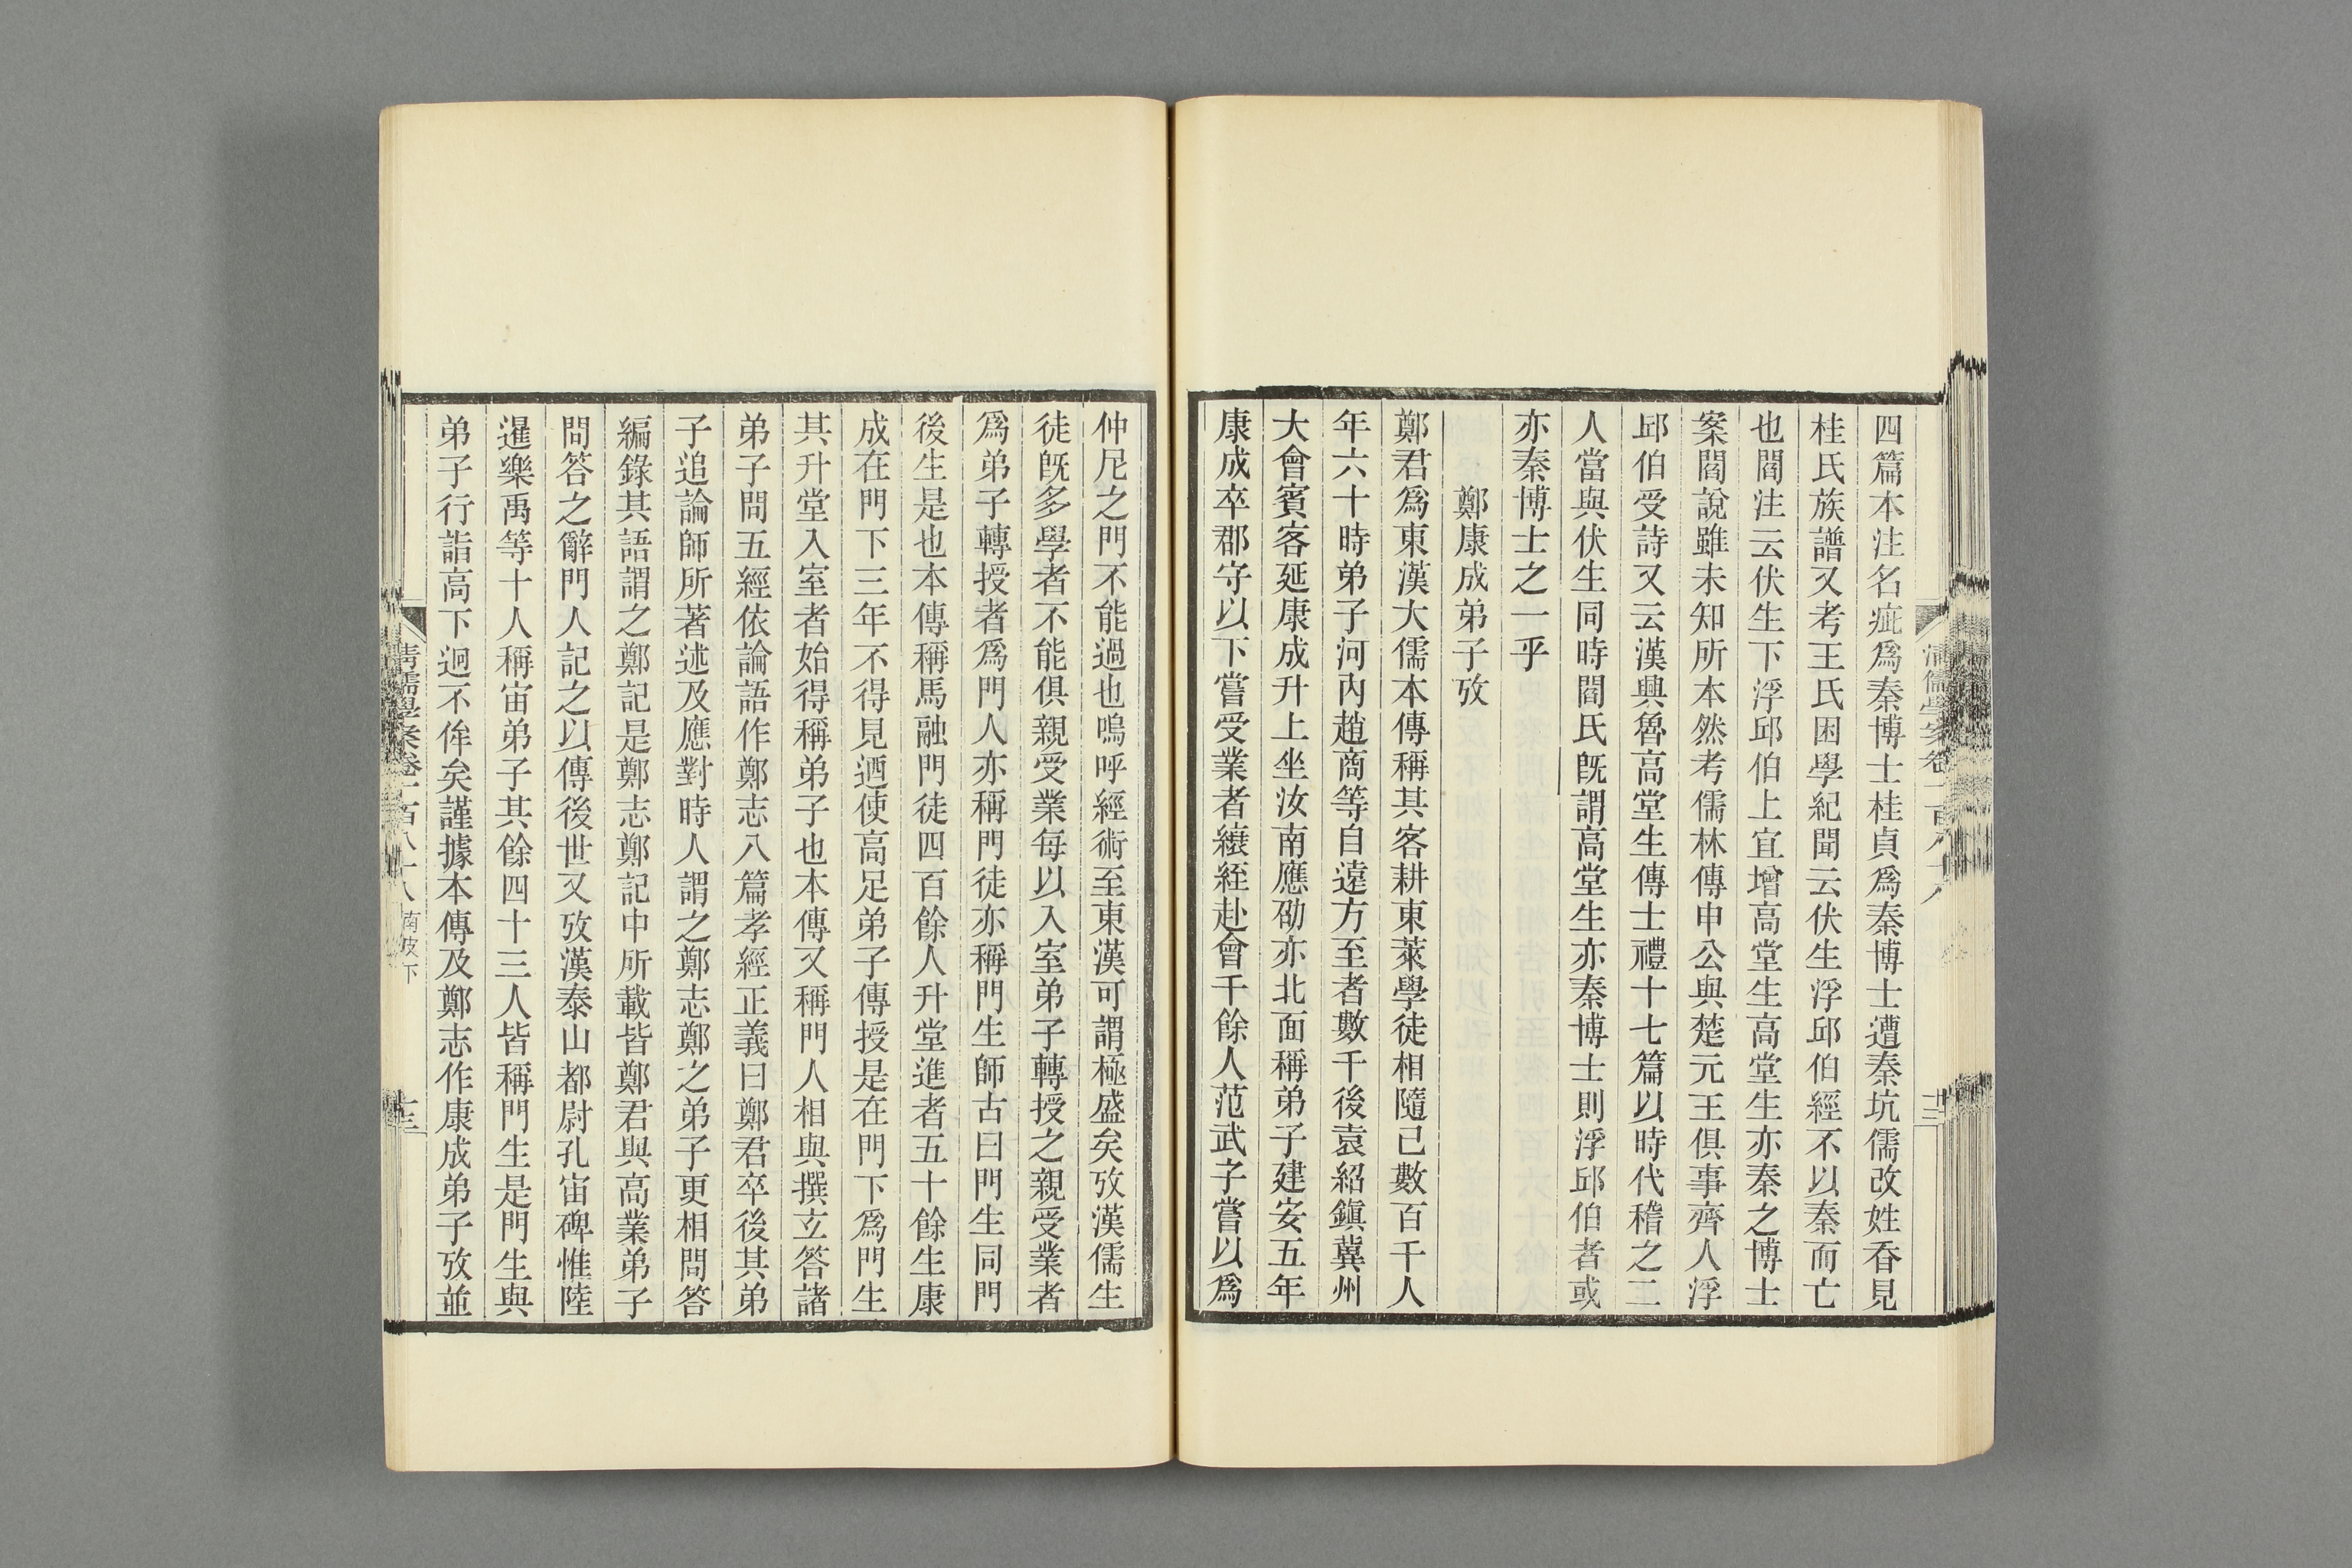 清儒學案卷一百八十八
十二
四篇本注名疵爲秦博士桂貞爲秦博士遭秦坑儒改姓昋見
桂氏族譜又考王氏困學紀聞云伏生浮邱伯經不以秦而亡
也閻注云伏生下浮邱伯上宜增高堂生高堂生亦秦之博士
案閻說雖未知所本然考儒林傳申公與楚元王俱事齊人浮
邱伯受詩又云漢興魯高堂生傳士禮十七篇以時代稽之二
人當與伏生同時閻氏既謂高堂生亦秦博士則浮邱伯者或
亦秦博士之一乎
鄭康成弟子攷
鄭君爲東漢大儒本傳稱其客耕東萊學徒相隨已數百千人
年六十時弟子河內趙商等自遠方至者數千後袁紹鎮冀州
大會賓客延康成升上坐汝南應劭亦北面稱弟子建安五年
康成卒郡守以下嘗受業者縗絰赴會千餘人范武子嘗以爲
仲尼之門不能過也嗚呼經術至東漢可謂極盛矣攷漢儒生
徒既多學者不能俱親受業每以入室弟子轉授之親受業者
爲弟子轉授者爲門人亦稱門徒亦稱門生師古曰門生同門
後生是也本傳稱馬融門徒四百餘人升堂進者五十餘生康
成在門下三年不得見迺使高足弟子傳授是在門下爲門生
其升堂入室者始得稱弟子也本傳又稱門人相與撰立答諸
弟子問五經依論語作鄭志八篇孝經正義曰鄭君卒後其弟
子追論師所著述及應對時人謂之鄭志鄭之弟子更相問答
編錄其語謂之鄭記是鄭志鄭記中所載皆鄭君與高業弟子
問答之辭門人記之以傳後世又攷漢泰山都尉孔宙碑惟陸
暹樂禹等十人稱宙弟子其餘四十三人皆稱門生是門生與
弟子行詣高下迥不侔矣謹據本傳及鄭志作康成弟子攷並
清儒學案卷一百八十八 南皮下
十三